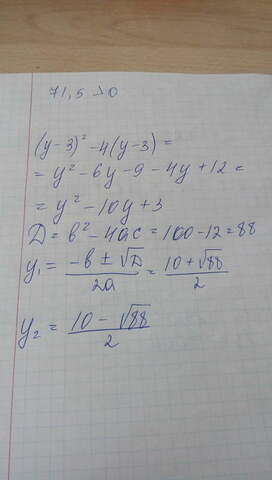 71,5 10
(y-3)² - 4(y-3) =
= y² - 6y - 9 - 4y + 12 =
= y² - 10y + 3
D = b² - 4ac = 100 - 12 = 88
y₁ = (-b ± √D)/2a = (10 + √88)/2
y₂ = (10 - √88)/2